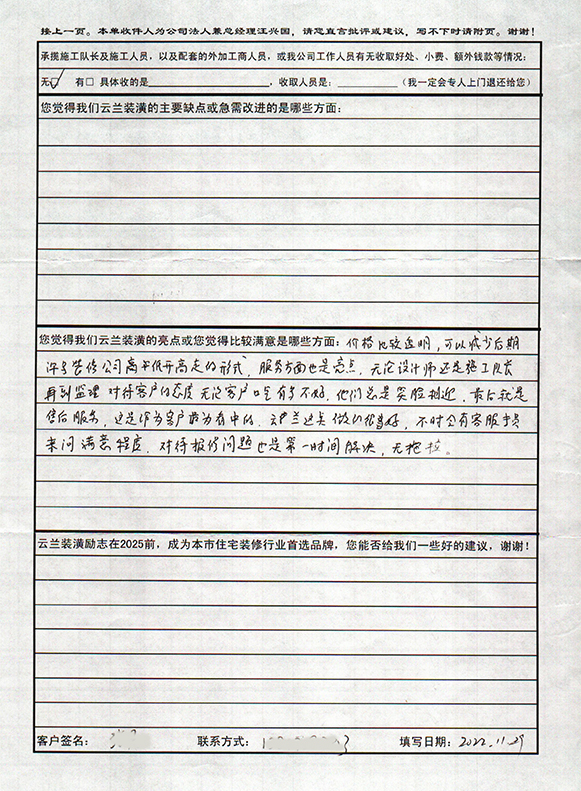 接上一页。本单收件人为公司法人兼总经理汪兴国，请您直言批评或建议，写不下时请附页。谢谢！
承揽施工队长及施工人员，以及配套的外加工商人员，或我公司工作人员有无收取好处、小费、额外钱款等情况：
无☑ 有□ 具体收的是，收取人员是：（我一定会专人上门退还给您）
您觉得我们云兰装潢的主要缺点或急需改进的是哪些方面：
您觉得我们云兰装潢的亮点或您觉得比较满意是哪些方面：价格比较透明，可以减少后期
许多装修公司离谱低开高走的形式，服务方面也是亮点，无论设计师还是施工队长
再到监理 对待客户的态度 无论客户 语气有多不好，他们总是笑脸相迎，最后就是
售后服务，这是作为客户最为看中的，云兰这点做的很好，不时会有客服专员
来问满意程度，对待报修问题也是第一时间解决，无拖拉。
云兰装潢励志在2025前，成为本市住宅装修行业首选品牌，您能否给我们一些好的建议，谢谢！
客户签名： 联系方式： 填写日期：2022.11.29